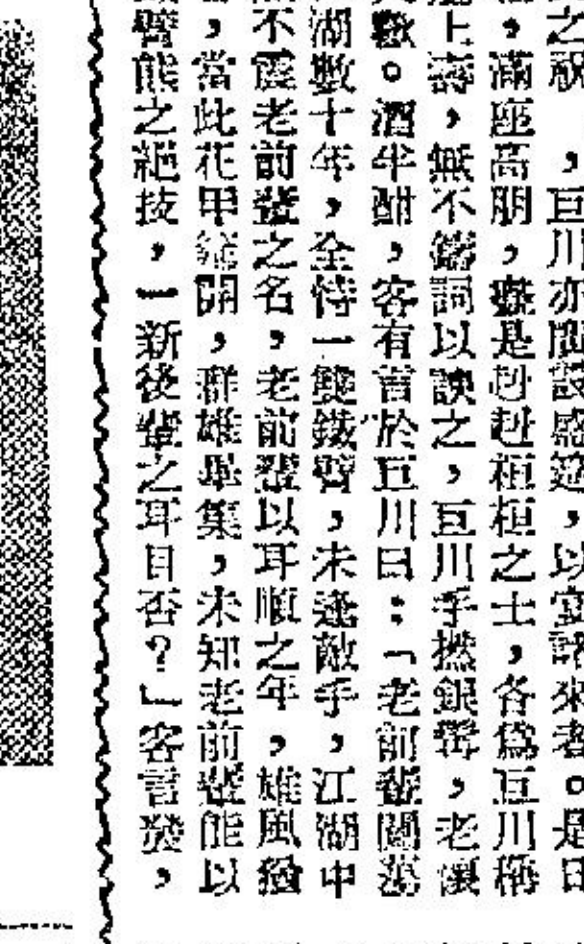 之祝，巨川亦開設盛筵，以宴諸來者。是日
，滿座高朋，是赳赳桓桓之士，各爲巨川稱
上壽，無不鑄詞以諛之，巨川手撚銀髯，老懷
歡。酒半酣，客有言於巨川曰：「老前輩闖蕩
湖數十年，全恃一雙鐵臂，未逢敵手，江湖中
不震老前輩之名，老前輩以耳順之年，雄風猶
，當此花甲筵開，群雄畢集，未知老前輩能以
臂熊之絕技，一新後輩之耳目否？」客言發，